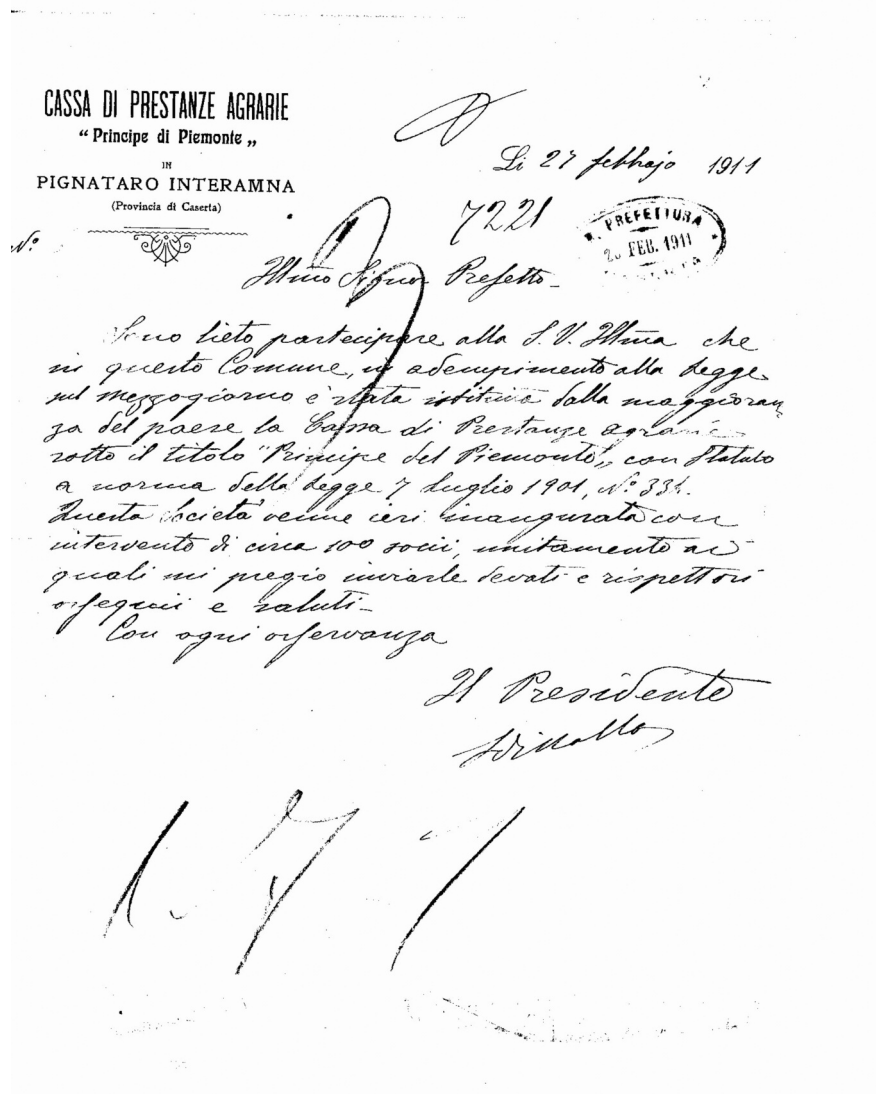 CASSA DI PRESTANZE AGRARIE
“ Principe di Piemonte „
IN
PIGNATARO INTERAMNA
(Provincia di Caserta)
N.°
Li 27 febbrajo 1911
7221
PREFETTURA
FEB. 1911
Illmo Signor Prefetto
Sono lieto partecipare alla S. V. Illma che
in questo Comune, in adempimento alla Legge
sul mezzogiorno è stata istituita dalla maggioran
za del paese la Cassa di Prestanze agrarie
sotto il titolo "Principe del Piemonte„ con Statuto
a norma della Legge 7 Luglio 1901, N.° 334.
Questa Società venne ieri inaugurata con
intervento di circa 100 socii, unitamente ai
quali mi pregio inviarle devoti e rispettosi
ossequii e saluti_
Con ogni osservanza
Il Presidente